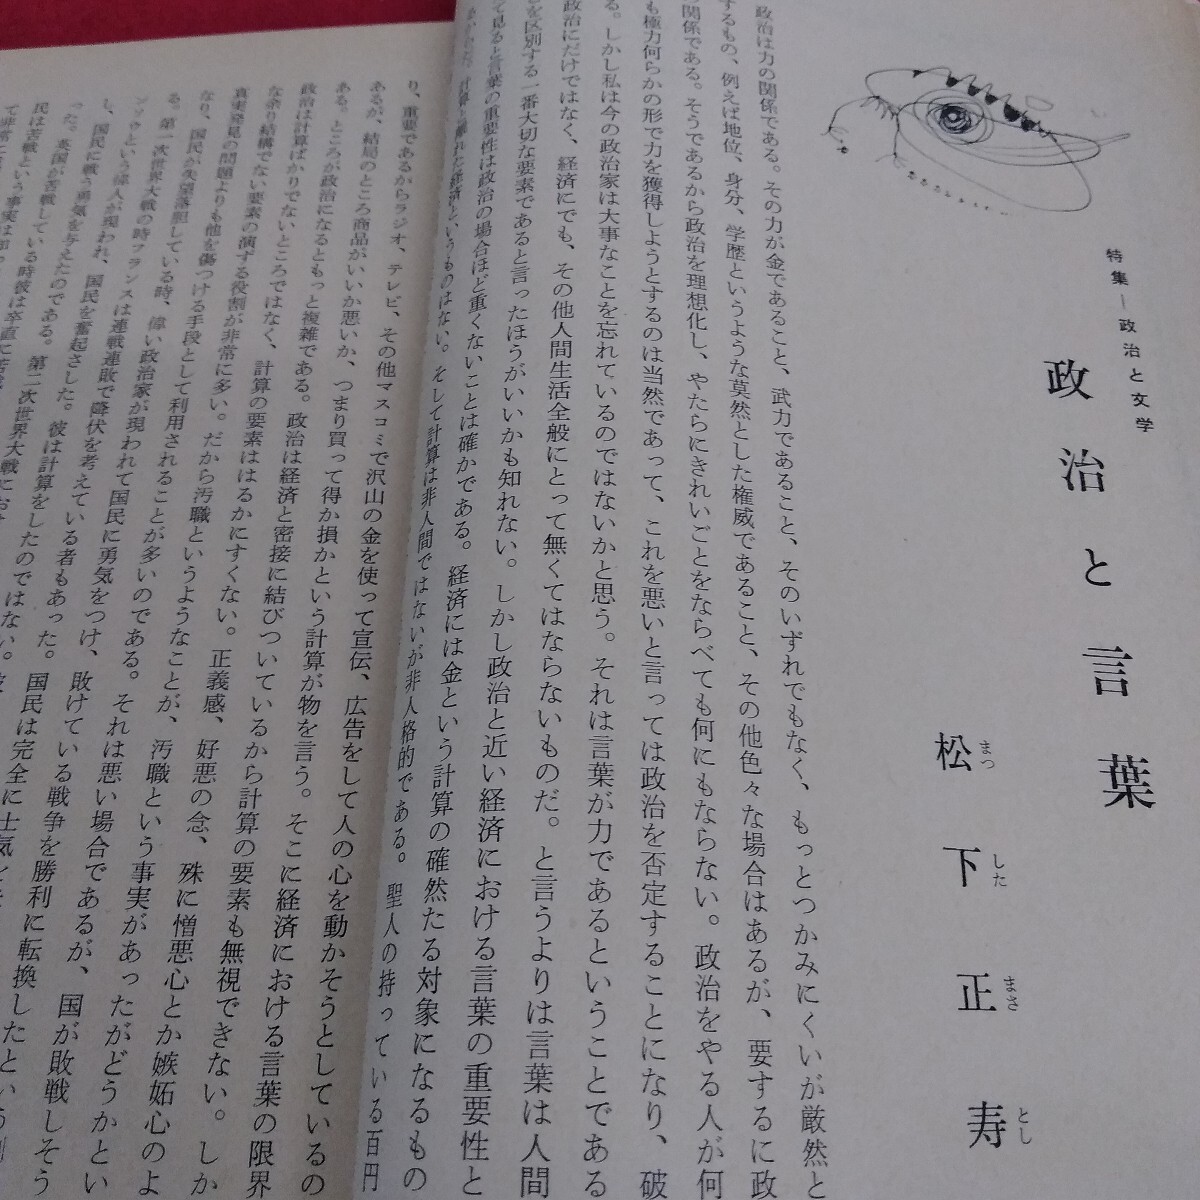 特集―政治と文学
政治と言葉
松下正寿
まつ した まさ とし
政治は力の関係である。その力が金であること、武力であること、そのいずれでもなく、もっとつかみにくいが厳然と
するもの、例えば地位、身分、学歴というような莫然とした権威であること、その他色々な場合はあるが、要するに政
関係である。そうであるから政治を理想化し、やたらにきれいごとをならべても何にもならない。政治をやる人が何
も極力何らかの形で力を獲得しようとするのは当然であって、これを悪いと言っては政治を否定することになり、破
る。しかし私は今の政治家は大事なことを忘れているのではないかと思う。それは言葉が力であるということである
政治にだけではなく、経済にでも、その他人間生活全般にとって無くてはならないものだ。と言うよりは言葉は人間
を区別する一番大切な要素であると言ったほうがいいかも知れない。しかし政治と近い経済における言葉の重要性と
て見ると言葉の重要性は政治の場合ほど重くないことは確かである。経済には金という計算の確然たる対象になるもの
計算と離れた経済というものはない。そして計算は非人間ではないが非人格的である。聖人の持っている百円
り、重要であるからラジオ、テレビ、その他マスコミで沢山の金を使って宣伝、広告をして人の心を動かそうとしているの
あるが、結局のところ商品がいいか悪いか、つまり買って得か損かという計算が物を言う。そこに経済における言葉の限界
ある。ところが政治になるともっと複雑である。政治は経済と密接に結びついているから計算の要素も無視できない。しか
政治は計算ばかりでないところではなく、計算の要素ははるかにすくない。正義感、好悪の念、殊に憎悪心とか嫉妬心のよ
な余り結構でない要素の演ずる役割が非常に多い。だから汚職というようなことが、汚職という事実があったがどうかとい
真実発見の問題よりも他を傷つける手段として利用されることが多いのである。それは悪い場合であるが、国が敗戦しそう
なり、国民が失望落胆している時、偉い政治家が現われて国民に勇気をつけ、敗けている戦争を勝利に転換したという例
る。第一次世界大戦の時フランスは連戦連敗で降伏を考えている者もあった。国民は完全に士気を
という偉人が現われ、国民を奮起さした。彼は計算をしたのではない。
し、国民に戦う勇気を与えたのである。第二次世界大戦にお
った。英国が苦戦している時彼は卒直に苦
民は苦戦という事実は知っ
て非常に